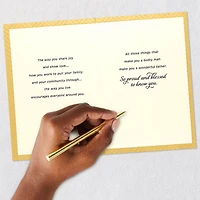 The way you share joy
and show love...
how you work to put your family
and your community through...
the way you live
encourages everyone around you.
All those things that
make you a godly man
make you a wonderful father.
So proud and blessed
to know you.